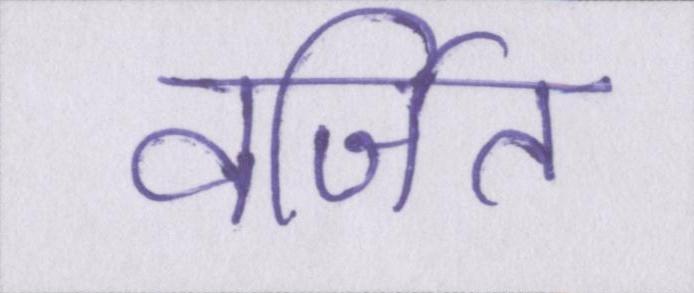 वर्जित